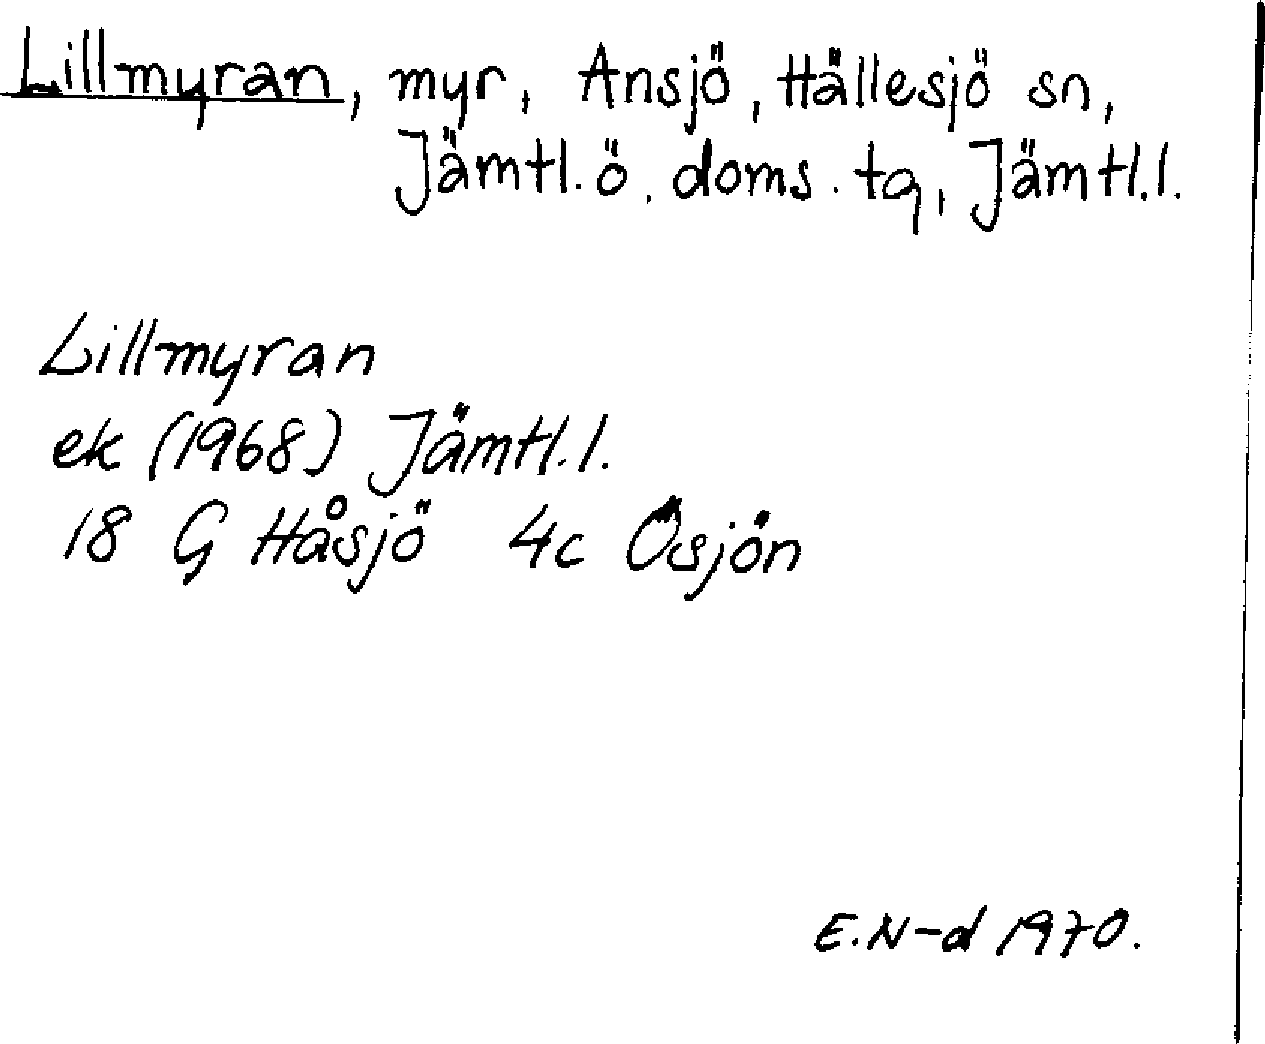 Lillmyran, myr, Ansjö, Hällesjö sn,
Jämtl. ö. doms. tg, Jämtl. l.
Lillmyran
ek (1968) Jämtl. l.
18 G Håsjö 4c Ösjön
E.N-d 1970.